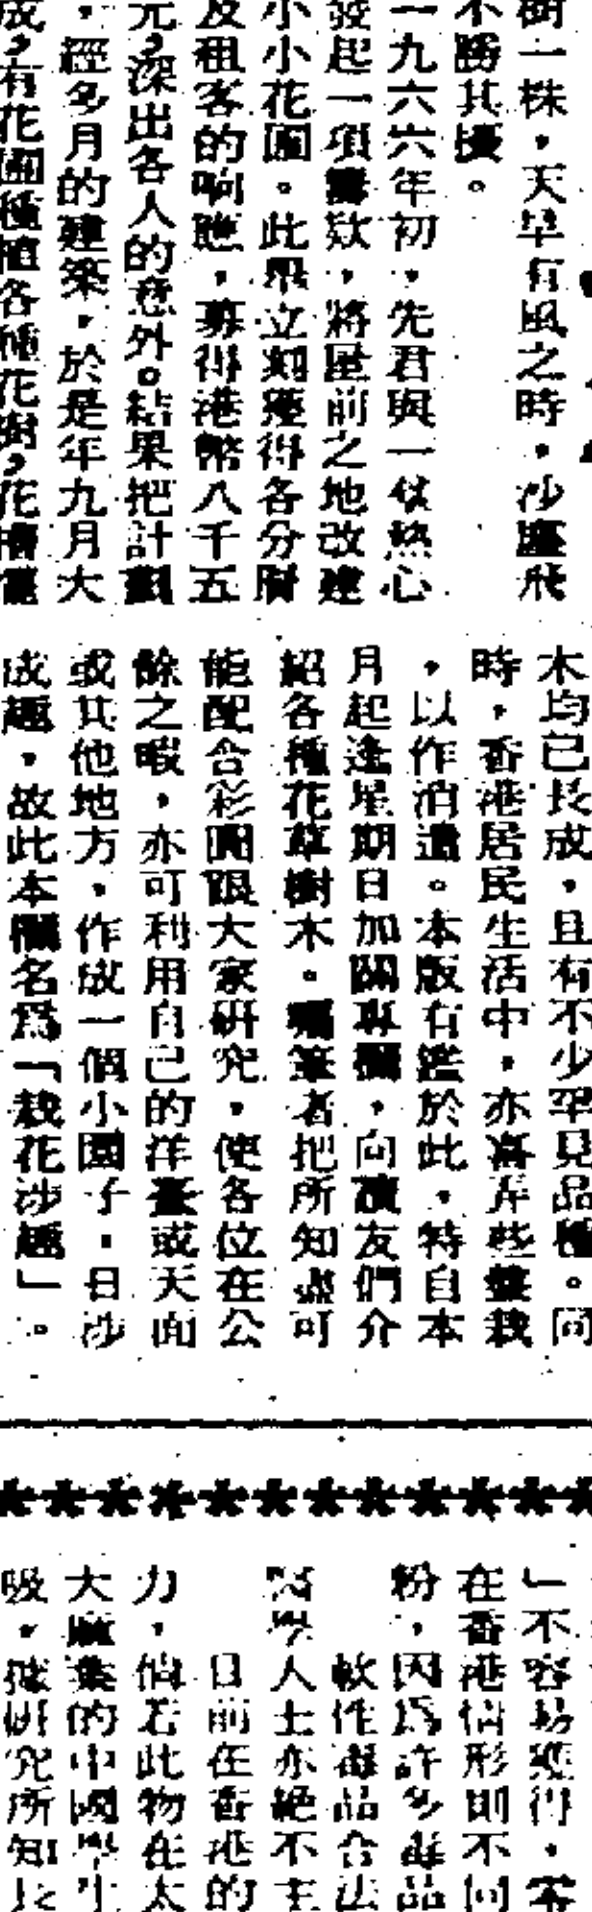 樹一株，天旱有風之時，沙塵飛
不勝其擾。
一九六六年初，先君與一伙熱心
發起一項籌欵，將屋前之地改建
小小花園。此舉立刻獲得各分層
及租客的响應，募得港幣八千五
元，深出各人的意外。結果把計劃
，經多月的建築，於是年九月大
成，有花圃種植各種花樹，花槽
木均已長成，且有不少罕見品種。同
時，香港居民生活中，亦喜弄些盤栽
，以作消遣。本版有鑑於此，特自本
月起逢星期日加闢專欄，向讀友們介
紹各種花草樹木。囑筆者把所知盡可
能配合彩圖跟大家研究，使各位在公
餘之暇，亦可利用自己的洋臺或天面
或其他地方，作成一個小園子，日涉
成趣，故此本欄名爲「栽花涉趣」。
」不容易獲得，零
在香港情形則不同
粉，因爲許多毒品
軟性毒品合法
醫學人士亦絕不主
目前在香港的
力，倘若此物在太
大麻葉的中國學生
吸，據研究所知長